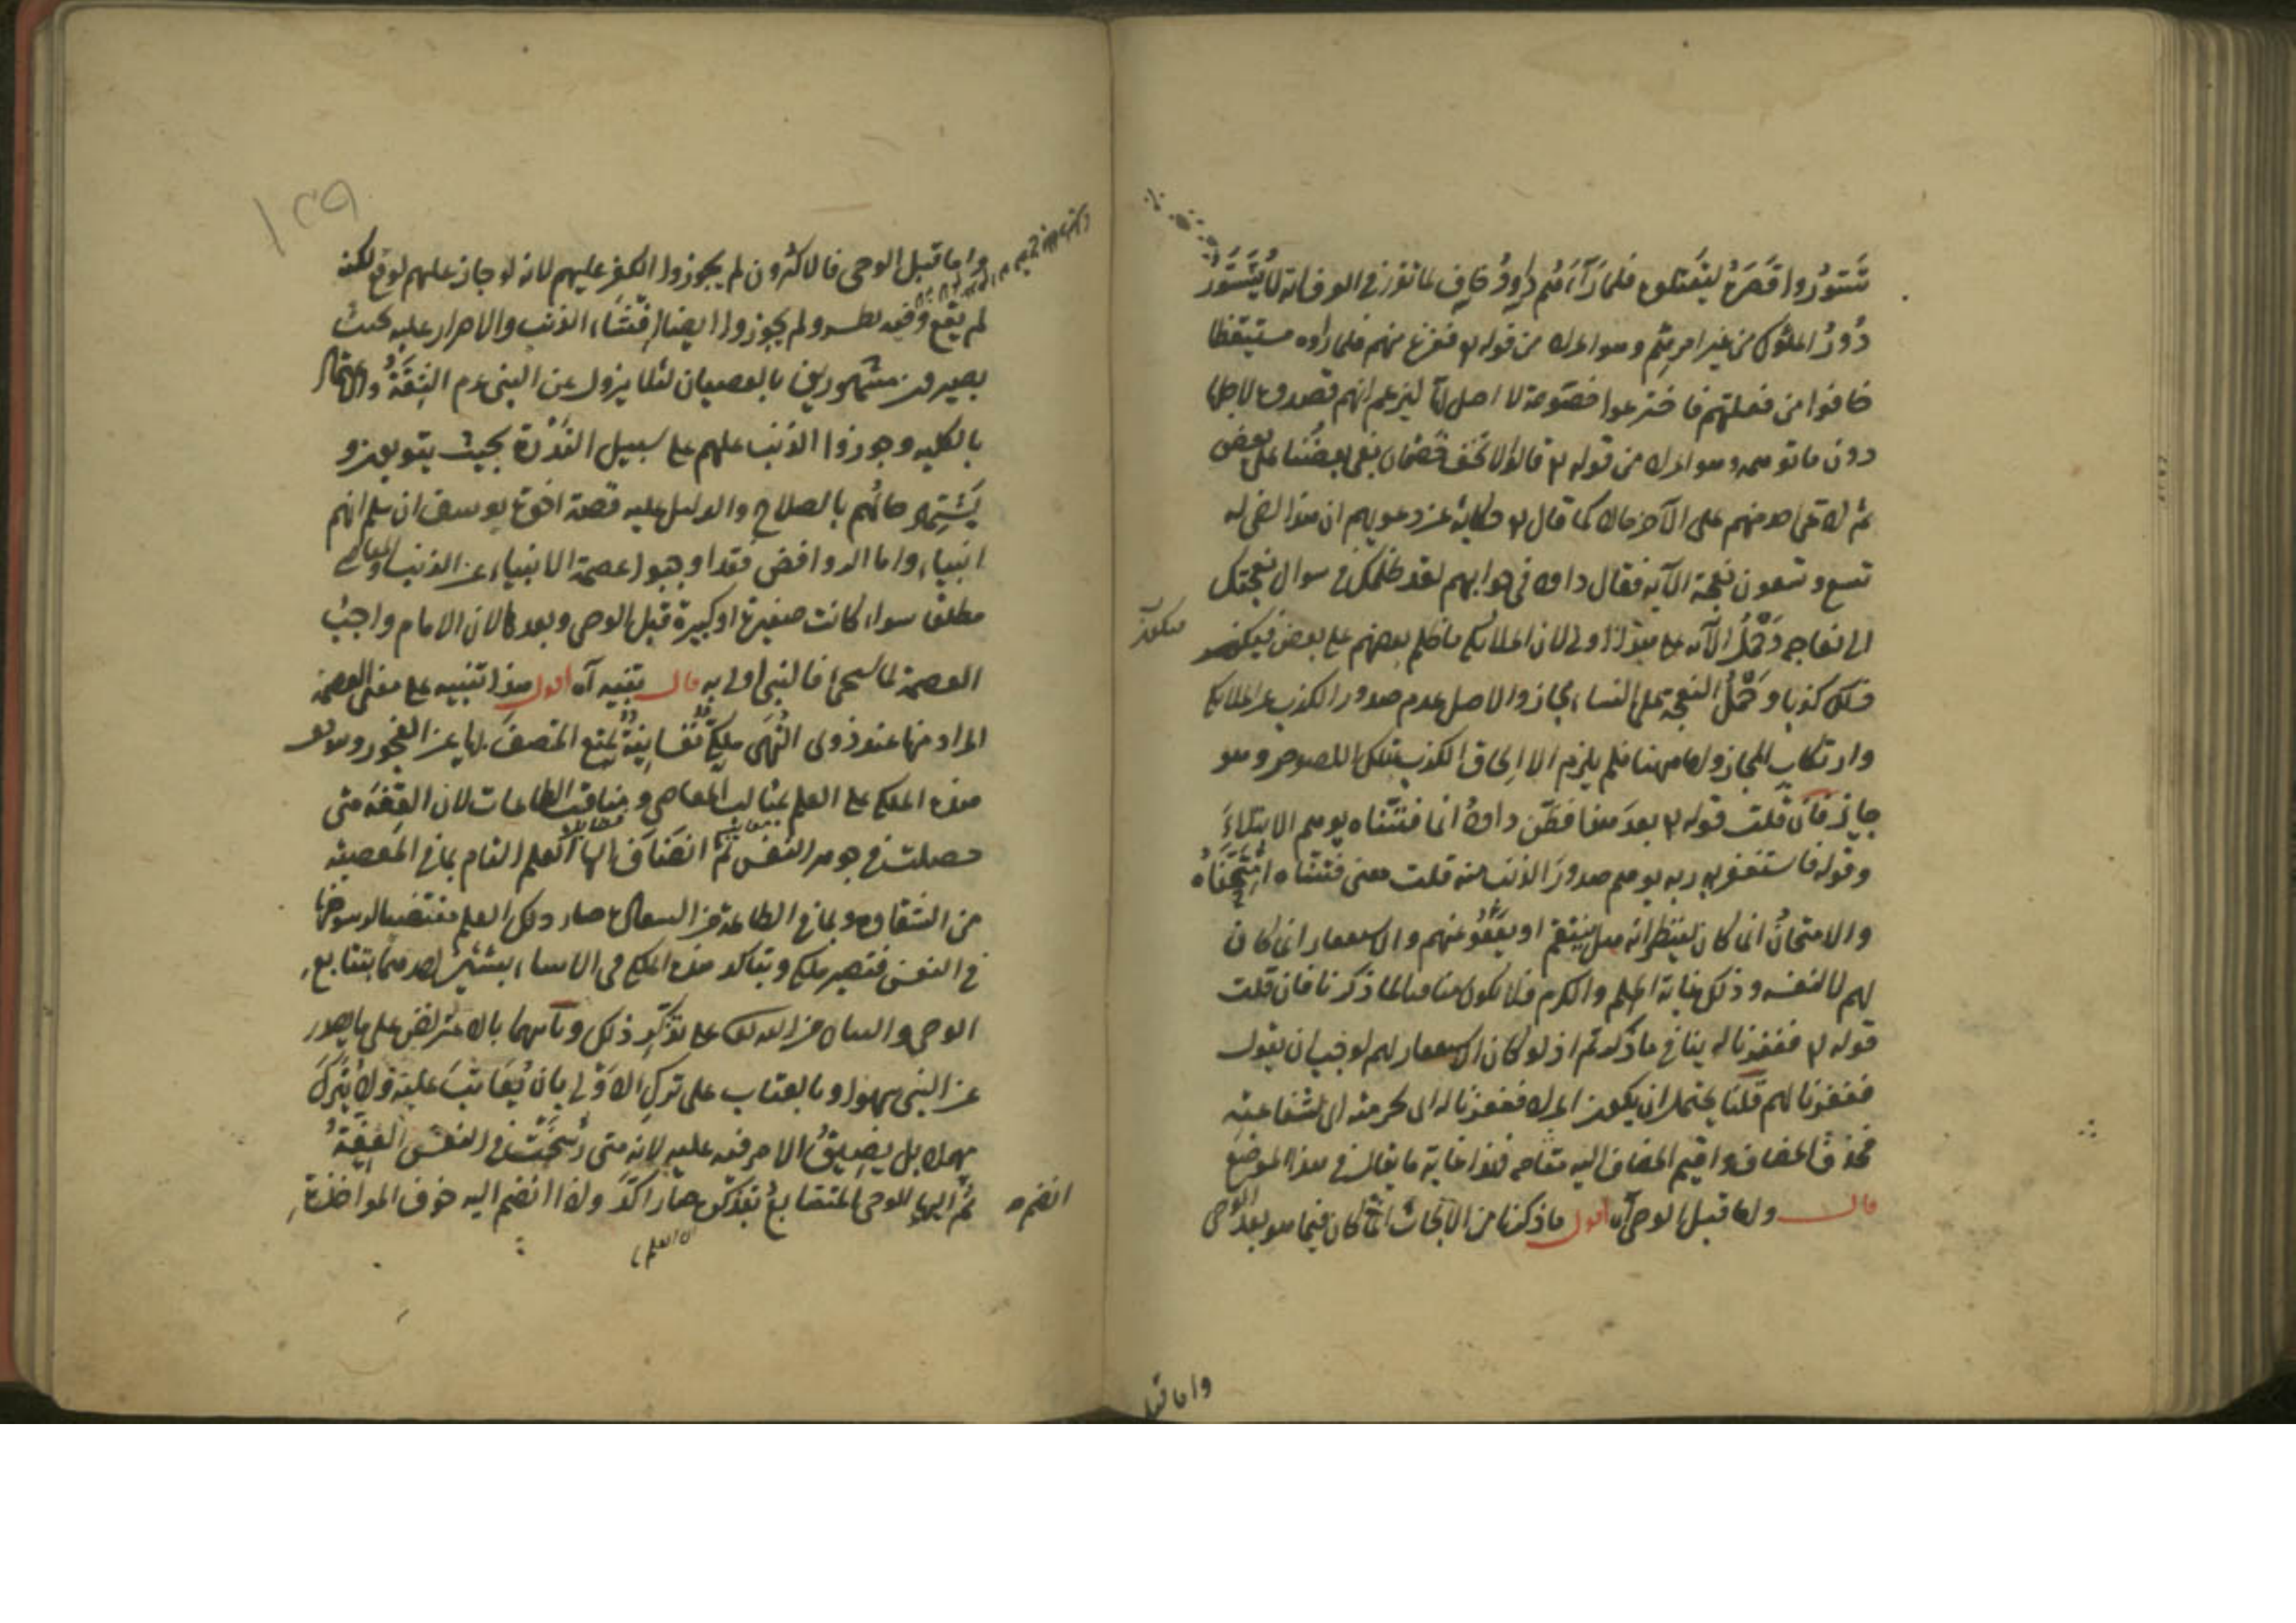 تَسَوَّرُوا قَصْرَهُ ليقتلوه فلما رَآهُم داوود خاف لما تقرر في العرف انه لا يُتَسَوَّرُ
دُورُ الملوك من غير امرهم وهو المراد من قوله تع ففزع منهم فلما رأوه مستيقظا
خافوا من فعلتهم فاخترعوا خصومة لا اصل لها ليزعم انهم قصدوه لاجلها
دون ما توهمه وهو المراد من قوله تع قالوا لا تخف خصمان بغى بعضنا على بعض
ثم ادعى احد منهم على الآخر مالا كما قال تع حكاية عن دعويهم ان هذا اخي له
تسع وتسعون نعجة الآية فقال داود في جوابهم لقد ظلمك في سوال نعجتك
الى نعاجه وحَمْلُ الآية على هذا اولى لان الملائكة ما ظلم بعضهم على بعض فيكون
ذلك كذبا وحَمْلُ النعجة على النساء مجاز والاصل عدم صدور الكذب عن الملائكة
وارتكاب المجاز واما ههنا فلم يلزم الا الحاق الكذب بتلك اللصوص وهو
جايز فان قلت قوله تع بعد هذا فظن داود انما فتناه يوهم الابتلاءَ
وقوله فاستغفر ربه يوهم صدورَ الذنب منه قلت معنى فتناه امْتَحَنَّاهُ
والامتحانُ انما كان ليُنظر انه هل ينتقم او يَعْفُو عنهم والاستغفار انما كان
لهم لا لنفسه وذلك غاية الحلم والكرم فلا يكون منافيا لما ذكرنا فان قلت
قوله تع فغفرنا له ينافي ما ذكرتم اذ لو كان الاستغفار لهم لوجب ان يقول
فغفرنا لهم قلنا يحتمل ان يكون المراد فغفرنا له اى لحرمته اى لشفاعته
فحذف المضاف واقيم المضاف اليه مقامه فهذا غاية ما يقال في هذا الموضع
قال واما قبل الوحى آه اقول ما ذكرنا من الابحاث انما كان فيما هو بعد الوحى
واما قبل
١٢٩
واما قبل الوحى فالاكثرون لم يجوزوا الكفر عليهم لانه لو جاز عليهم لوقع لكنه
لم يقع وفيه نظر ولم يجوزوا ايضا افشاء الذنب والاصرار عليه بحيث
يصيرون مشهورين بالعصيان لئلا يزول عن النبى عم الثِقَةُ
بالكليه وجوزوا الذنب عليهم على سبيل الندرة بحيث يتوبون و
يشتهر حالهم بالصلاح والدليل عليه قصة اخوة يوسف ان سلم انهم
انبياء واما الروافض فقد اوجبوا عصمة الانبياء عن الذنب والمعاصى
مطلقا سواء كانت صغيرة او كبيرة قبل الوحى وبعده لان الامام واجب
العصمة لما سيجئ فالنبى اولى به قال تنبيه آه اقول هذا تنبيه على معنى العصمة
المراد منها عند ذوى النُهَى ملكة نفسانية تمنع المتصف بها عن الفجور
هذه الملكة على العلم بمثالب المعاصى ومناقب الطاعات لان العفة متى
حصلت في جوهر النفس ثم انضاف اليها العلم التام بما في المعصية
من الشقاوة وبما في الطاعة من السعادة صار ذلك العلم مقتضيا لرسوخها
في النفس فتصير ملكة ويتأكد هذه الملكة في الانبياء بتتابع
الوحى والبيان من الله تع على تذكر ذلك وتأكدها بالاعتراض على ما يصدر
عن النبى سهوا وبالعتاب على ترك الاَوْلى بان يُعَاتَبَ عليه ولا يُترَكَ
مهملا بل يضيق الامر فيه عليه لانه متى رسخت في النفس العِفَّةُ
ثم اليها الوحى المتتابع بتذكر صار آكد ولذا انضم اليه خوف المواخذة
انضم